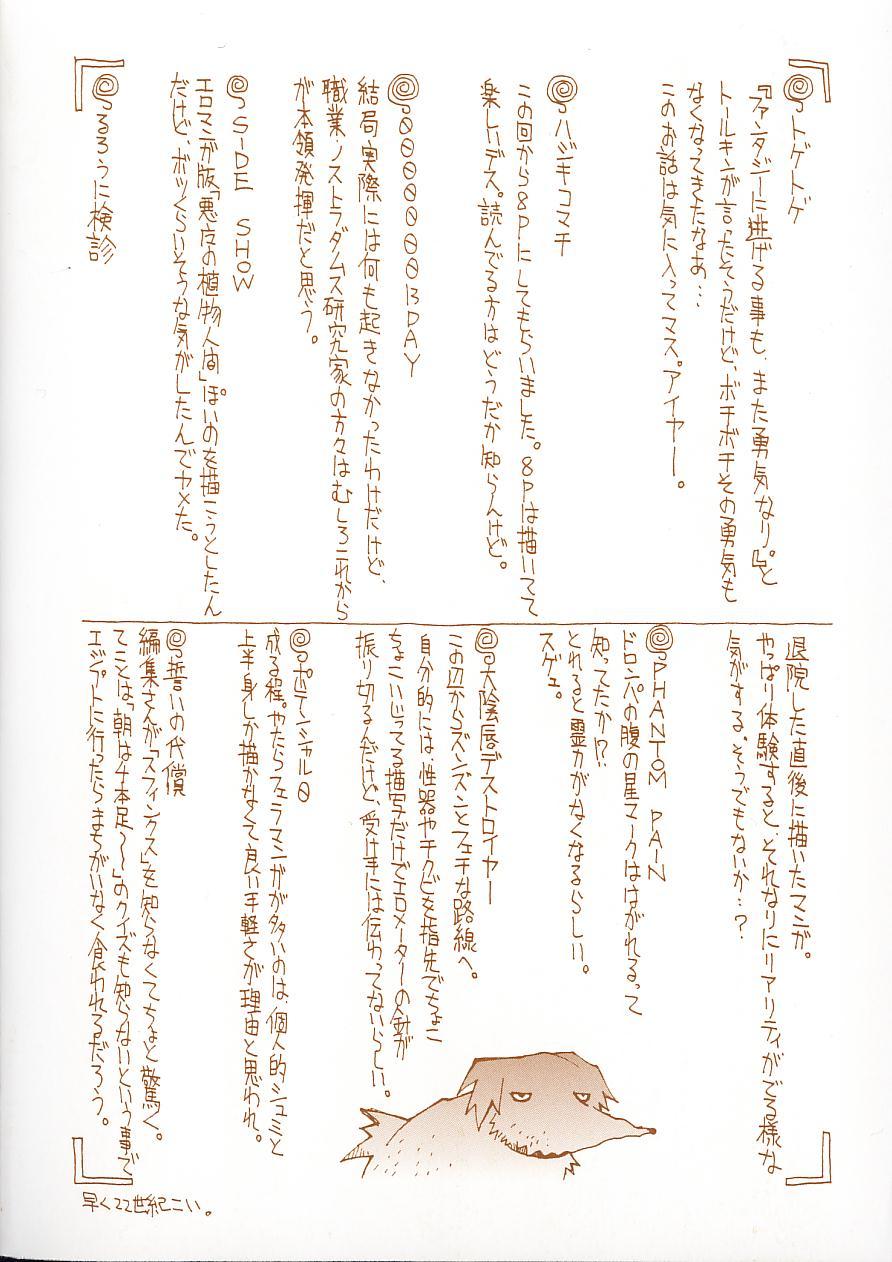 トゲトゲ
『ファンタジーに逃げる事も、また勇気なり。』と
トールキンが言ったそうだけど、ボチボチその勇気も
なくなってきたなあ…
このお話は気に入ってマス。アイヤー。
ハジキコマチ
この回から8Pにしてもらいました。8Pは描いてて
楽しいデス。読んでる方はどうだか知らんけど。
0000000B DAY
結局実際には何も起きなかったわけだけど、
職業・ノストラダムス研究家の方々はむしろこれから
が本領発揮だと思う。
SIDE SHOW
エロマンガ版「悪方の植物人間」ぽいのを描こうとしたん
だけど、ボツくらいそうな気がしたんでヤメた。
るろうに検診
退院した直後に描いたマンガ。
やっぱり体験すると、それなりにリアリティがでる様な
気がする。そうでもないか…?
PHANTOM PAIN
ドロンパの腹の星マークははがれるって
知ってたか!?
とれると霊力がなくなるらしい。
スゲェ。
大陰唇デストロイヤー
この辺からズンズンとフェチな路線へ。
自分的には、性器やチクビを指先でちょこ
ちょこいじってる描写だけでエロメーターの針が
振り切るんだけど、受け手には伝わってないらしい。
ポテンシャル0
成る程。やたらフェラマンガが多いのは、個人的シュミと
上半身しか描かなくて良い手軽さが理由と思われ。
誓いの代償
編集さんが「スフィンクス」を知らなくてちょと驚く。
てことは、「朝は4本足〜〜」のクイズも知らないという事で
エジプトに行ったらまちがいなく食われるだろう。
早く22世紀こい。